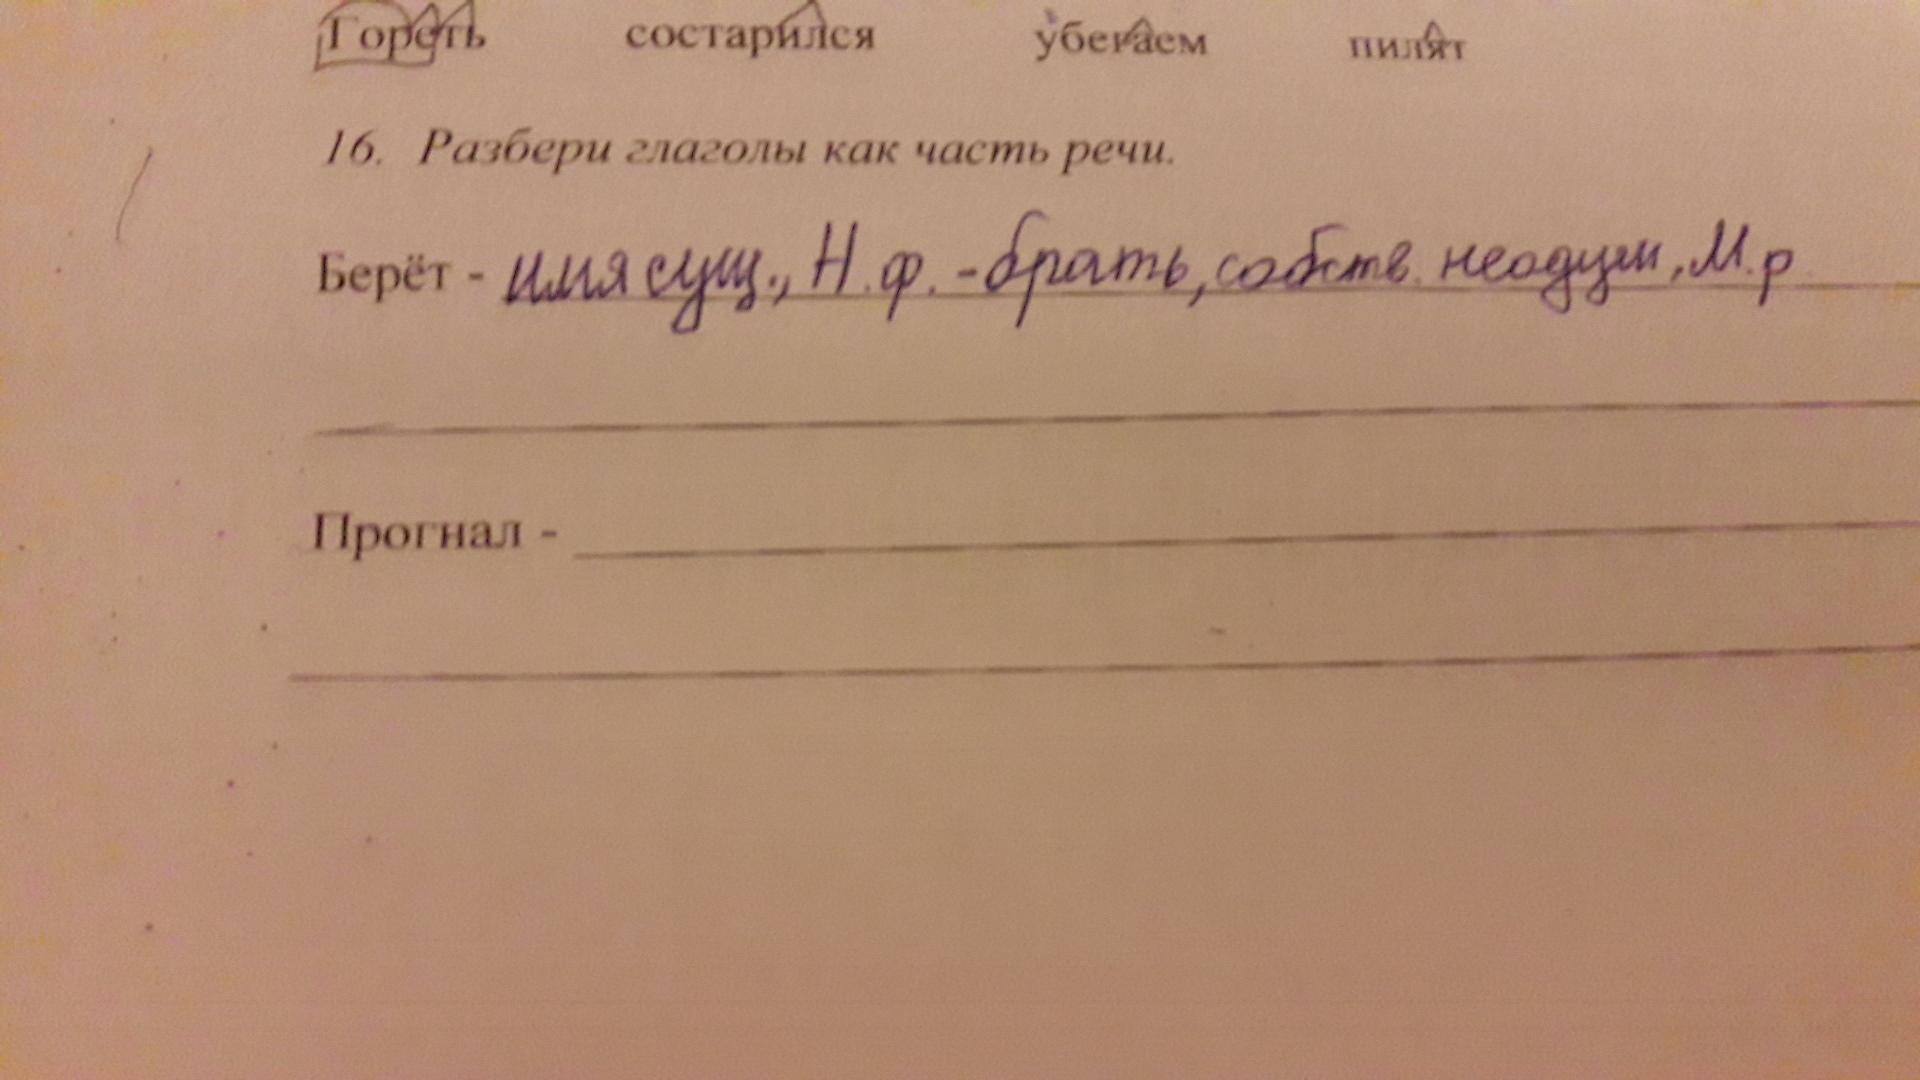 Гореть состарился убегаем пилят
16. Разбери глаголы как часть речи.
Берёт - имя сущ., Н.ф. - брать, собств. неодуш., М.р
Прогнал -